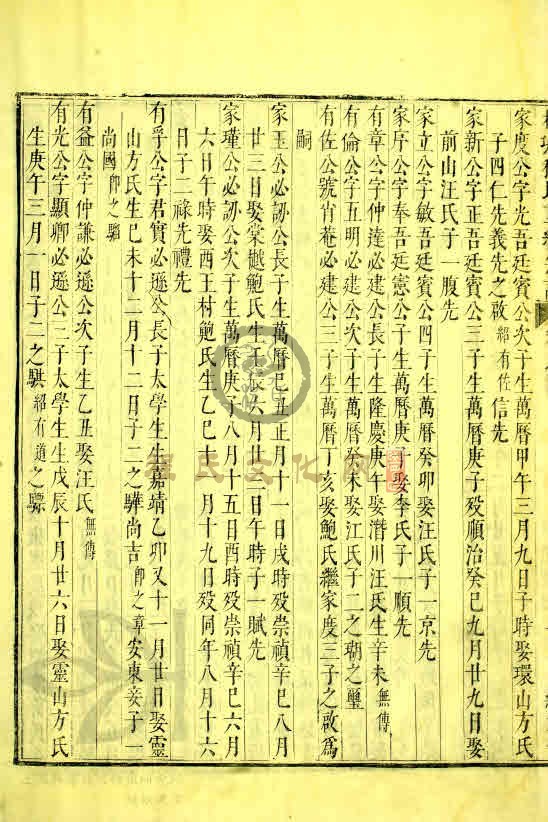 家度公字光吾廷賓公次子生萬曆甲午三月九日子時娶環山方氏
子四仁先義先之啟紹有佐信先
家新公字正吾廷賓公三子生萬曆庚子歿順治癸巳九月廿九日娶
前山汪氏子一腹先
家立公字敏吾廷賓公四子生萬曆癸卯娶汪氏子一京先
家序公字奉吾廷憲公子生萬曆庚子娶李氏子一順先
有章公字仲達必建公長子生隆慶庚午娶潛川汪氏生辛未無傳
有倫公字五明必建公次子生萬曆癸未娶江氏子二之瑚之璽
有佐公號肖菴必建公三子生萬曆丁亥娶鮑氏繼家度三子之啟爲
嗣
家玉公必訒公長子生萬曆己丑正月十一日戌時歿崇禎辛巳八月
廿三日娶棠樾鮑氏生壬辰六月廿三日午時子一賦先
家瑾公必訒公次子生萬曆庚子八月十五日酉時歿崇禎辛巳六月
六日午時娶西王村鮑氏生乙巳十 月十九日歿同年八月十六
日子二祿先禮先
有孚公字君實必遜公長子太學生生嘉靖乙卯又十一月廿日娶靈
山方氏生己未十二月十二日子二之驊尚吉卽之章安東妾子一
尚國卽之驌
有益公字仲謙必遜公次子生乙丑娶汪氏無傳
有光公字顯卿必遜公三子太學生生戊辰十月廿六日娶靈山方氏
生庚午三月一日子二之騏紹有道之驃
程氏文化网